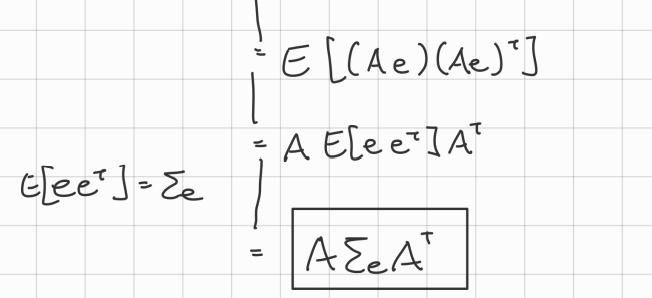 = E[(Ae)(Ae)ᵀ]
= A E[e eᵀ] Aᵀ
E[eeᵀ] = Σₑ
= AΣₑAᵀ